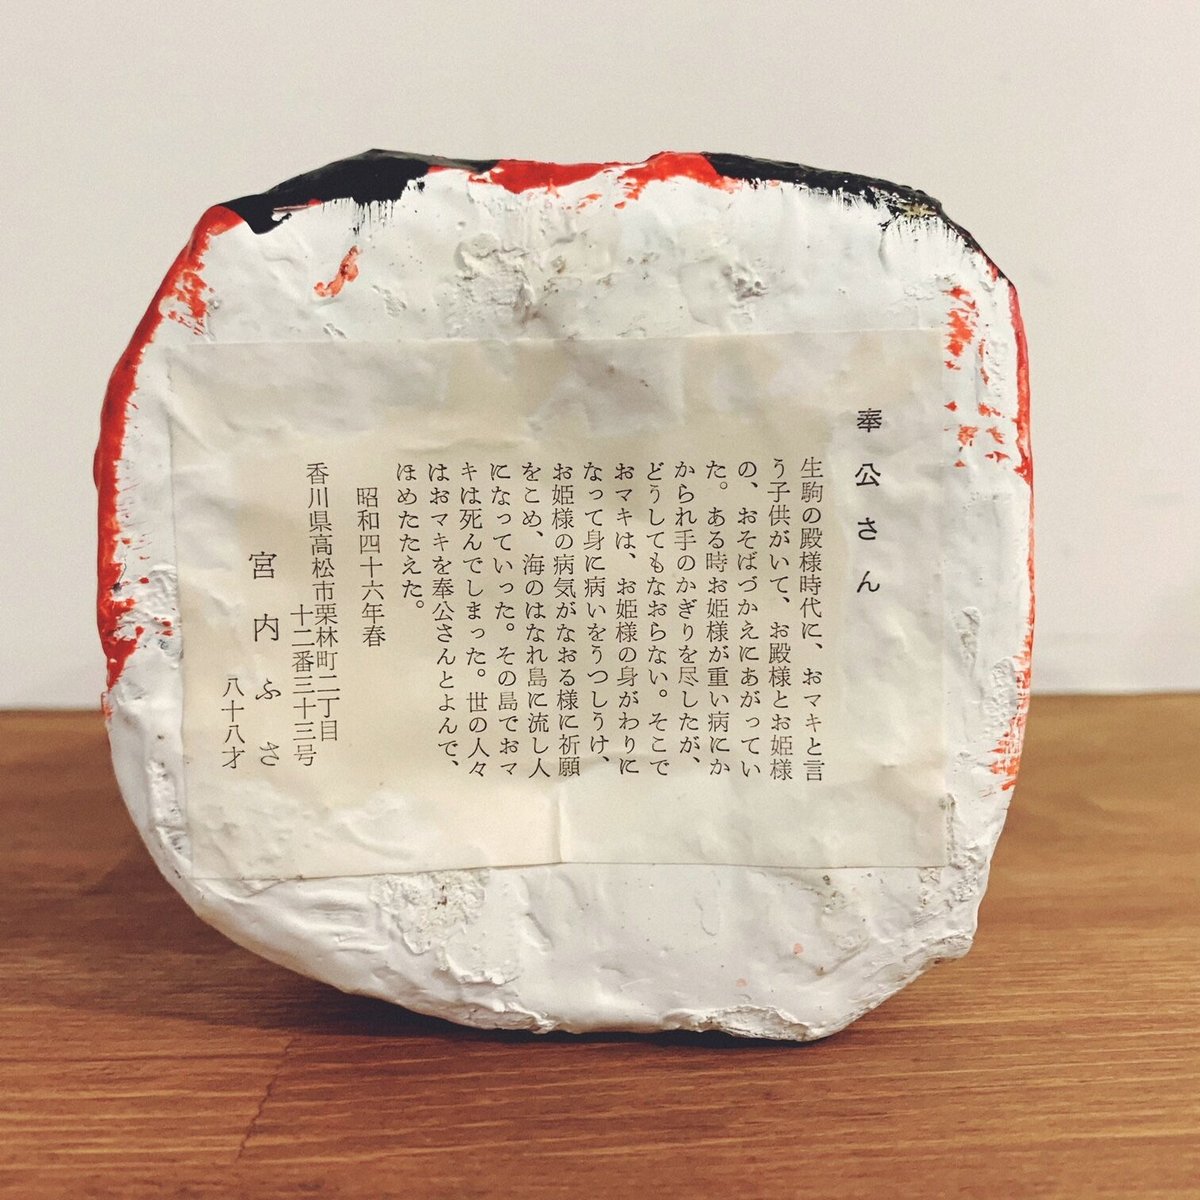 奉公さん
生駒の殿様時代に、おマキと言
う子供がいて、お殿様とお姫様
の、おそばづかえにあがってい
た。ある時お姫様が重い病にか
かられ手のかぎりを尽したが、
どうしてもなおらない。そこで
おマキは、お姫様の身がわりに
なって身に病いをうつしうけ、
お姫様の病気がなおる様に祈願
をこめ、海のはなれ島に流し人
になっていった。その島でおマ
キは死んでしまった。世の人々
はおマキを奉公さんとよんで、
ほめたたえた。
昭和四十六年春
香川県高松市栗林町二丁目
十二番三十三号
宮内ふさ
八十八才